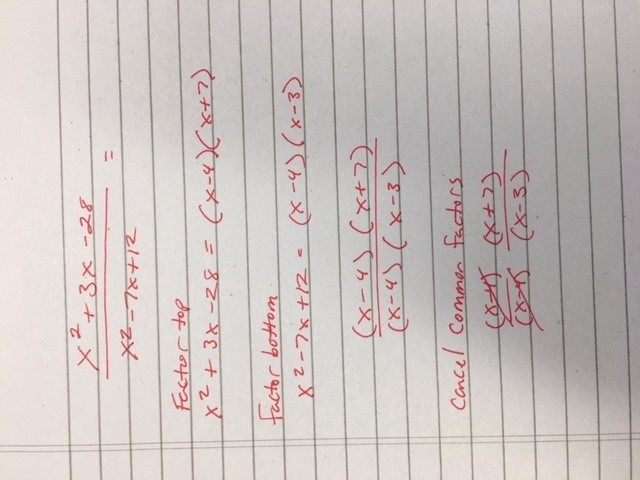 x² + 3x - 28
x² - 7x + 12 =
Factor top
x² + 3x - 28 = (x-4)(x+7)
factor bottom
x² - 7x + 12 = (x-4)(x-3)
(x-4)(x+7)
(x-4)(x-3)
Cancel common factors
(x-4)(x+7)
(x-4)(x-3)